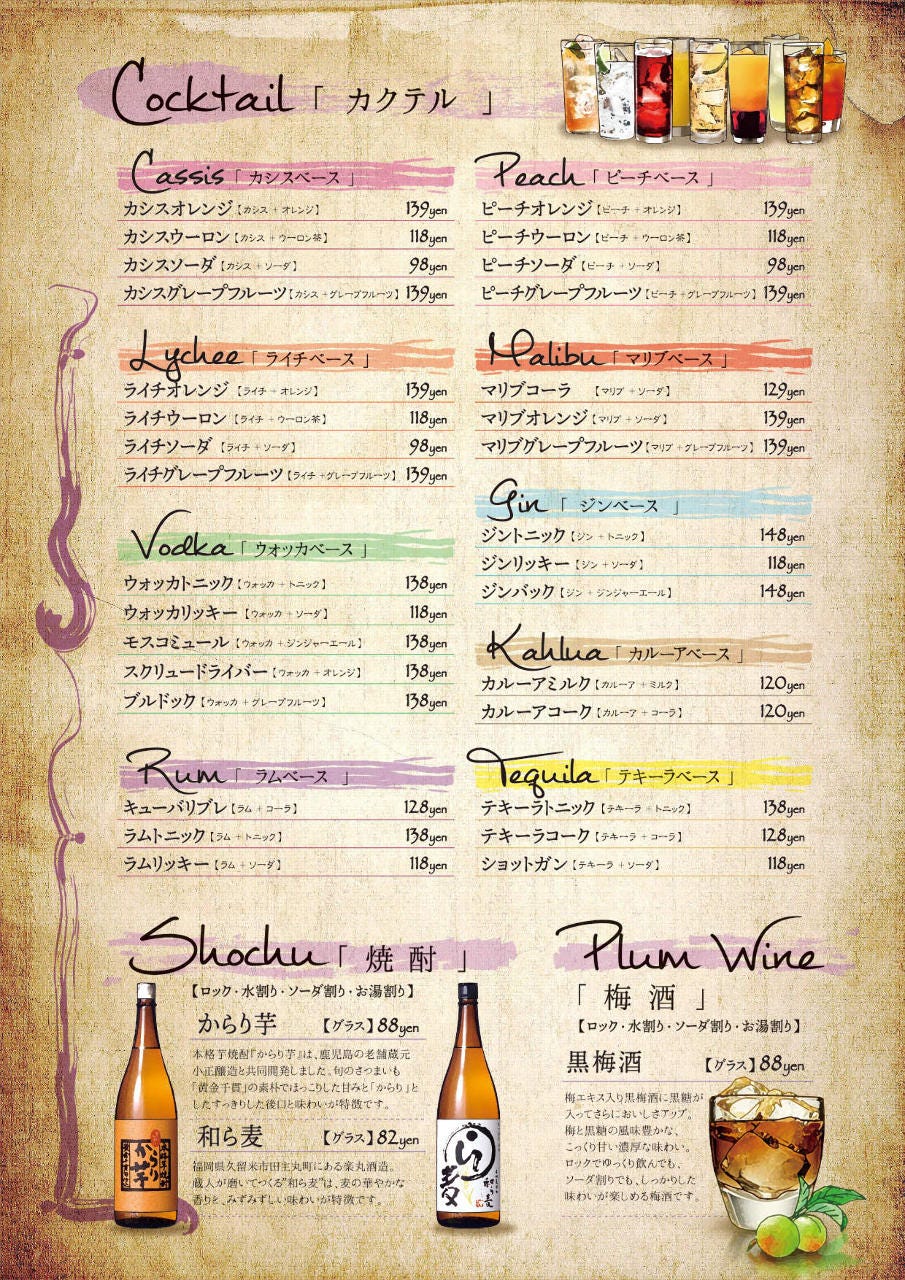 Cocktail「 カクテル 」
Cassis「 カシスベース 」
カシスオレンジ【カシス + オレンジ】 139yen
カシスウーロン【カシス + ウーロン茶】 118yen
カシスソーダ【カシス + ソーダ】 98yen
カシスグレープフルーツ【カシス + グレープフルーツ】 139yen
Lychee「 ライチベース 」
ライチオレンジ【ライチ + オレンジ】 139yen
ライチウーロン【ライチ + ウーロン茶】 118yen
ライチソーダ【ライチ + ソーダ】 98yen
ライチグレープフルーツ【ライチ + グレープフルーツ】 139yen
Vodka「 ウォッカベース 」
ウォッカトニック【ウォッカ + トニック】 138yen
ウォッカリッキー【ウォッカ + ソーダ】 118yen
モスコミュール【ウォッカ + ジンジャーエール】 138yen
スクリュードライバー【ウォッカ + オレンジ】 138yen
ブルドック【ウォッカ + グレープフルーツ】 138yen
Rum「 ラムベース 」
キューバリブレ【ラム + コーラ】 128yen
ラムトニック【ラム + トニック】 138yen
ラムリッキー【ラム + ソーダ】 118yen
Peach「 ピーチベース 」
ピーチオレンジ【ピーチ + オレンジ】 139yen
ピーチウーロン【ピーチ + ウーロン茶】 118yen
ピーチソーダ【ピーチ + ソーダ】 98yen
ピーチグレープフルーツ【ピーチ + グレープフルーツ】 139yen
Malibu「 マリブベース 」
マリブコーラ【マリブ + ソーダ】 129yen
マリブオレンジ【マリブ + ソーダ】 139yen
マリブグレープフルーツ【マリブ + グレープフルーツ】 139yen
Gin「 ジンベース 」
ジントニック【ジン + トニック】 148yen
ジンリッキー【ジン + ソーダ】 118yen
ジンバック【ジン + ジンジャーエール】 148yen
Kahlua「 カルーアベース 」
カルーアミルク【カルーア + ミルク】 120yen
カルーアコーク【カルーア + コーラ】 120yen
Tequila「 テキーラベース 」
テキーラトニック【テキーラ + トニック】 138yen
テキーラコーク【テキーラ + コーラ】 128yen
ショットガン【テキーラ + ソーダ】 118yen
Shochu「 焼 酎 」
【ロック・水割り・ソーダ割り・お湯割り】
からり芋 【グラス】88yen
本格芋焼酎『からり芋』は、鹿児島の老舗蔵元
小正醸造と共同開発しました。旬のさつまいも
「黄金千貫」の素朴でほっこりした甘みと「からり」と
したすっきりした後口と味わいが特徴です。
和ら麦 【グラス】82yen
福岡県久留米市田主丸町にある楽丸酒造。
蔵人が磨いてつくる"和ら麦"は、麦の華やかな
香りと、みずみずしい味わいが特徴です。
からり
芋
らら
麦
Plum Wine
「 梅 酒 」
【ロック・水割り・ソーダ割り・お湯割り】
黒梅酒 【グラス】88yen
梅エキス入り黒梅酒に黒糖が
入ってさらにおいしさアップ。
梅と黒糖の風味豊かな、
こっくり甘い濃厚な味わい。
ロックでゆっくり飲んでも、
ソーダ割りでも、しっかりした
味わいが楽しめる梅酒です。